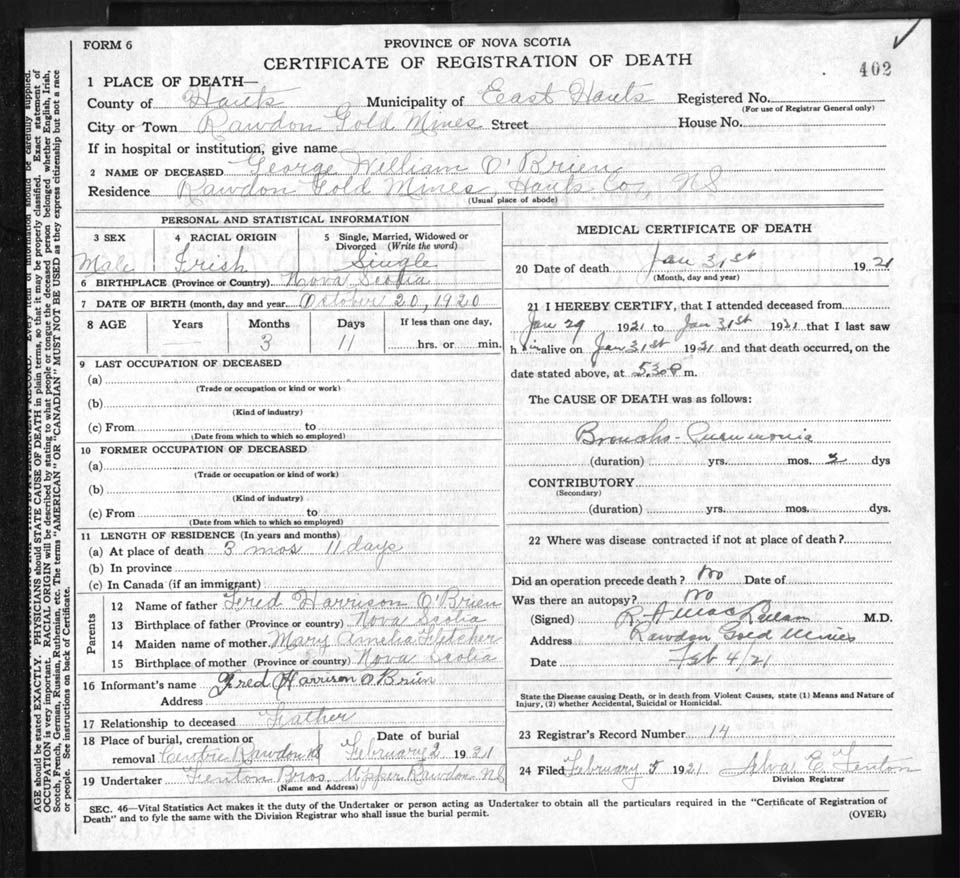 FORM 6
PROVINCE OF NOVA SCOTIA
CERTIFICATE OF REGISTRATION OF DEATH
402
1 PLACE OF DEATH—
County of Hants Municipality of East Hants Registered No.
(For use of Registrar General only)
City or Town Rawdon Gold Mines Street House No.
If in hospital or institution, give name
2 NAME OF DECEASED George William O'Brien
Residence Rawdon Gold Mines, Hants Co, NS
(Usual place of abode)
PERSONAL AND STATISTICAL INFORMATION
3 SEX 4 RACIAL ORIGIN 5 Single, Married, Widowed or Divorced (Write the word)
Male Irish Single
6 BIRTHPLACE (Province or Country) Nova Scotia
7 DATE OF BIRTH (month, day and year) October 20, 1920
8 AGE Years Months Days If less than one day,
— 3 11 hrs. or min.
9 LAST OCCUPATION OF DECEASED
(a)
(Trade or occupation or kind or work)
(b)
(Kind of industry)
(c) From to
(Date from which to which so employed)
10 FORMER OCCUPATION OF DECEASED
(a)
(Trade or occupation or kind of work)
(b)
(Kind of industry)
(c) From to
(Date from which to which so employed)
11 LENGTH OF RESIDENCE (In years and months)
(a) At place of death 3 mos 11 days
(b) In province
(c) In Canada (if an immigrant)
Parents
12 Name of father Fred Harrison O'Brien
13 Birthplace of father (Province or country) Nova Scotia
14 Maiden name of mother Mary Amelia Fletcher
15 Birthplace of mother (Province or country) Nova Scotia
16 Informant's name Fred Harrison O Brien
Address
17 Relationship to deceased Father
18 Place of burial, cremation or removal Centre Rawdon NS Date of burial February 2 1921
19 Undertaker Fenton Bros Upper Rawdon NS
(Name and Address)
MEDICAL CERTIFICATE OF DEATH
20 Date of death Jan 31st 1921
(Month, day and year)
21 I HEREBY CERTIFY, that I attended deceased from
Jan 29 1921 to Jan 31st 1921 that I last saw
him alive on Jan 31st 1921 and that death occurred, on the
date stated above, at 5.30 P m.
The CAUSE OF DEATH was as follows:
Broncho-Pneumonia
(duration) yrs. mos. 2 dys
CONTRIBUTORY
(Secondary)
(duration) yrs. mos. dys.
22 Where was disease contracted if not at place of death?
Did an operation precede death? No Date of
Was there an autopsy? No
(Signed) M.D.
Address Rawdon Gold Mines
Date Feb 4/21
State the Disease causing Death, or in death from Violent Causes, state (1) Means and Nature of
Injury, (2) whether Accidental, Suicidal or Homicidal.
23 Registrar's Record Number 14
24 Filed February 5 1921 Alva E Fenton
Division Registrar
SEC. 46—Vital Statistics Act makes it the duty of the Undertaker or person acting as Undertaker to obtain all the particulars required in the "Certificate of Registration of
Death" and to fyle the same with the Division Registrar who shall issue the burial permit.
(OVER)
Every item of information should be carefully supplied.
AGE should be stated EXACTLY. PHYSICIANS should STATE CAUSE OF DEATH in plain terms, so that it may be properly classified. Exact statement of
OCCUPATION is very important. RACIAL ORIGIN will be described by stating to what people or tongue the deceased person belonged whether English, Irish,
Scotch, French, German, Russian, Ruthenian, etc. The terms "AMERICAN" OR "CANADIAN" MUST NOT BE USED as they express citizenship but not a race
or people. See instructions on back of Certificate.